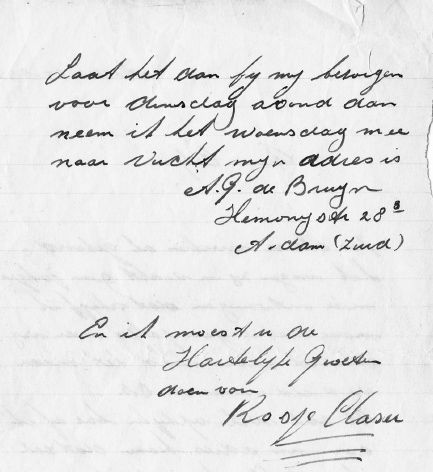 Laat het dan by my bezorgen
voor dinsdag avond dan
neem ik het woensdag mee
naar Vucht myn adres is
A.J. de Bruyn
Hemonystr 28 3
A.dam (Zuid)
En ik moest u de
Hartelyke Groeten
doen van
Roosje Glaser